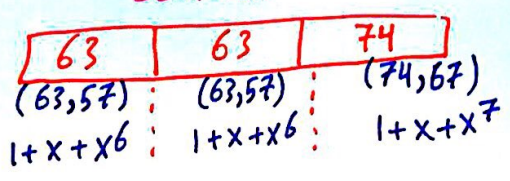 63 63 74
(63,57) (63,57) (74,67)
1+x+x⁶ 1+x+x⁶ 1+x+x⁷